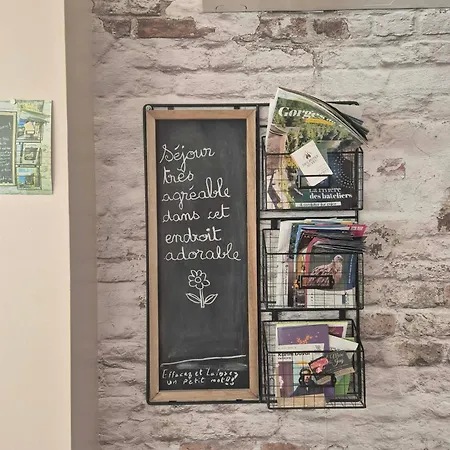 Séjour
très
agréable
dans cet
endroit
adorable
Effacez et laissez
un petit mot!!
Gorges
La rivière
des bateliers